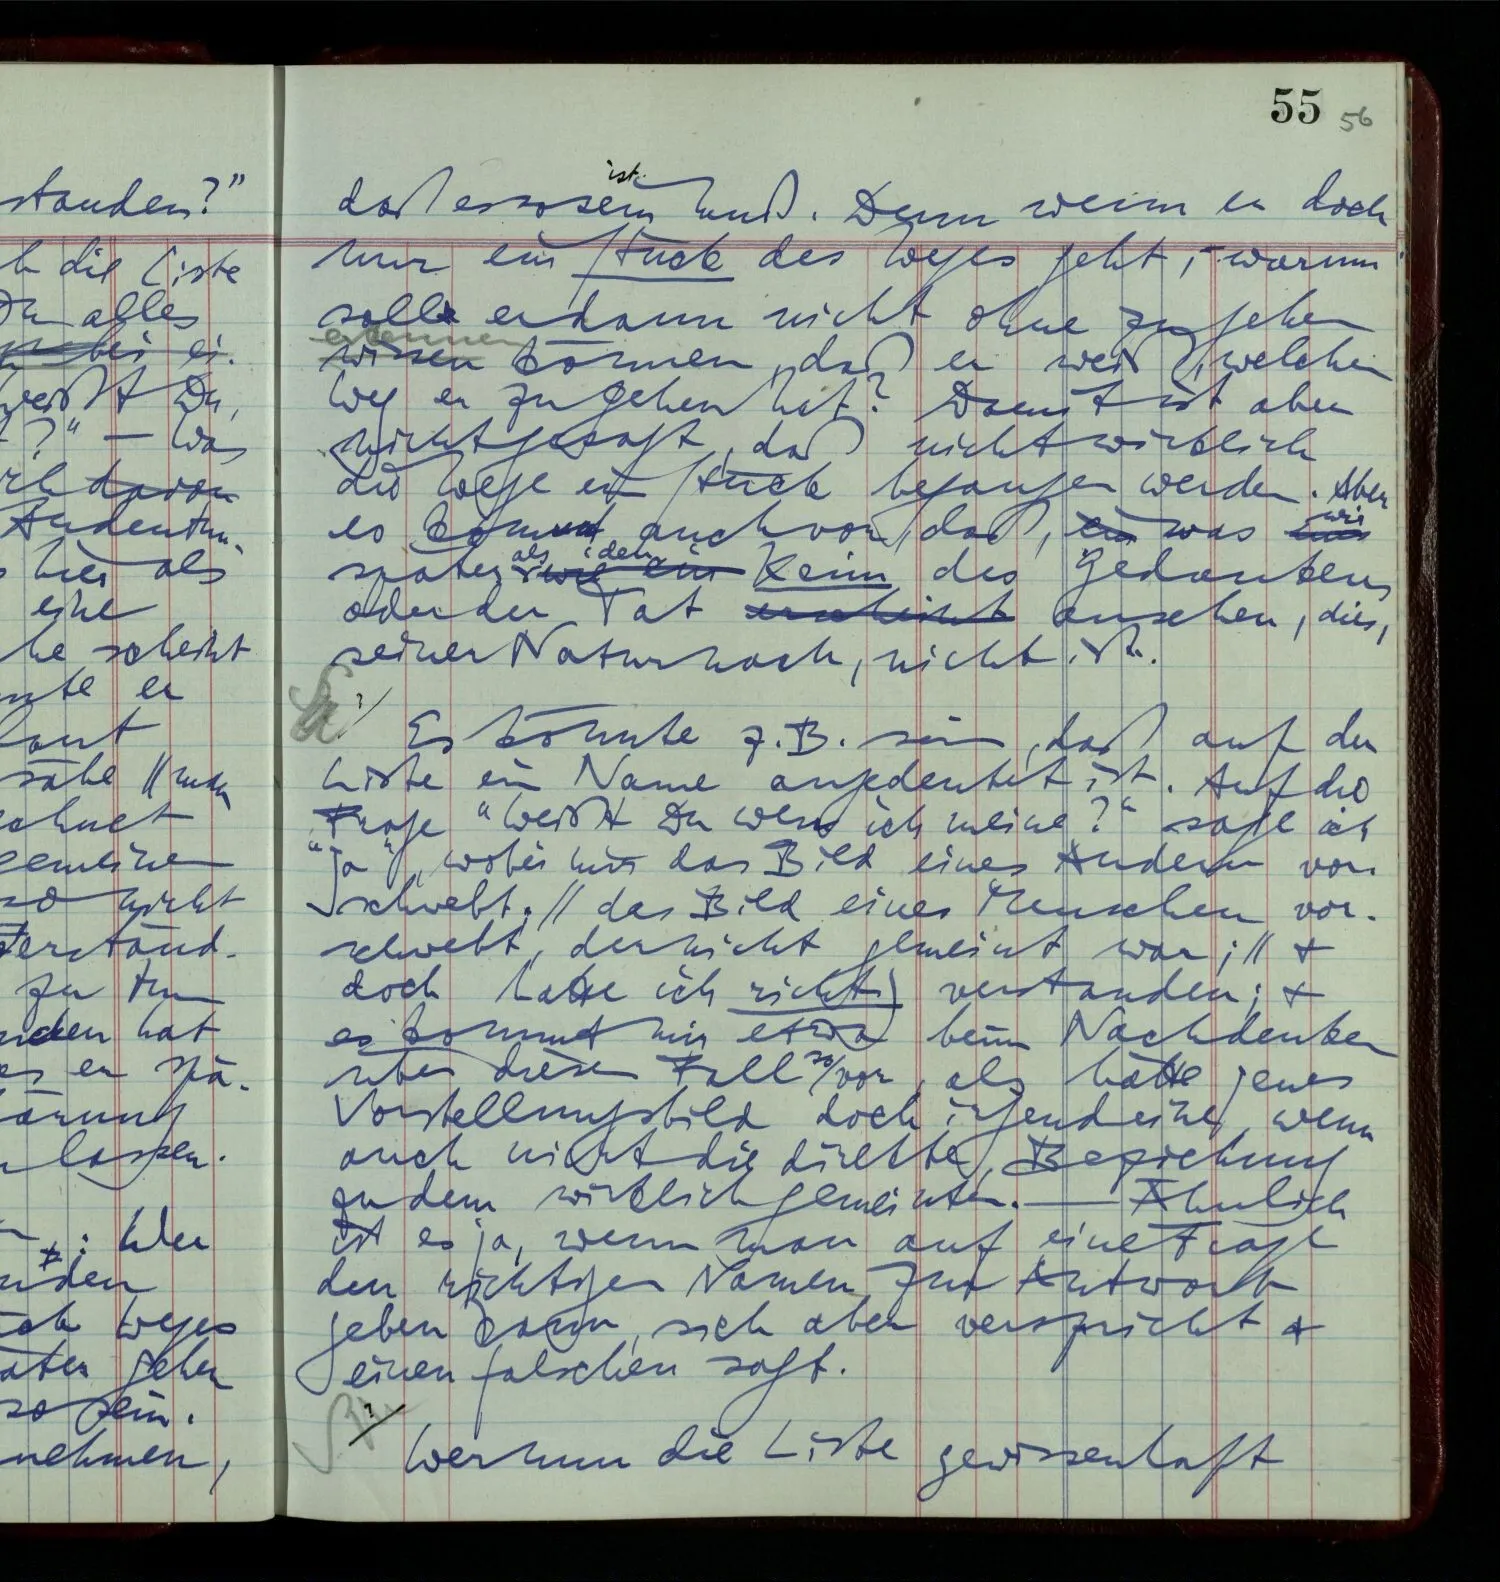 standen?"
die Liste
alles
bei
weißt Du,
?" — Was
davon
Andeutun-
hier als
eine
scheint
er
sähe // man
gemeinen
so nicht
Verständ-
zu tun
hat
es er spä-
lassen.
: Wer
Weges
gehen
so sein.
nehmen,
55 56
ist
daß es so sein muß. Denn wenn er doch
nur ein Stück des Weges geht, – warum
sollte er dann nicht ohne zu gehen
erkennen
wissen können, daß er weiß, welchen
Weg er zu gehen hat? Damit ist aber
nicht gesagt, daß nicht wirklich
die Wege ein Stück begangen werden. Aber
es kommt auch vor, daß, ein was wir
später als den wie ein Keim des Gedankens
oder der Tat erscheint ansehen, dies,
seiner Natur nach, nicht ist.
Es könnte z.B. sein, daß auf der
Liste ein Name angedeutet ist. Auf die
Frage "Weißt Du wen ich meine?" sage ich
"ja", wobei mir das Bild eines Andern vor-
schwebt; // das Bild eines Menschen vor-
schwebt, der nicht gemeint war; // &
doch hatte ich richtig verstanden; &
es kommt mir etwa beim Nachdenken
über diesen Fall so vor, als hätte jenes
Vorstellungsbild doch irgend eine, wenn
auch nicht die direkte, Beziehung
zu dem wirklich gemeinten. — Ähnlich
ist es ja, wenn man auf eine Frage
den richtigen Namen zur Antwort
geben kann, sich aber verspricht &
einen falschen sagt.
Wer nun die Liste gewissenhaft